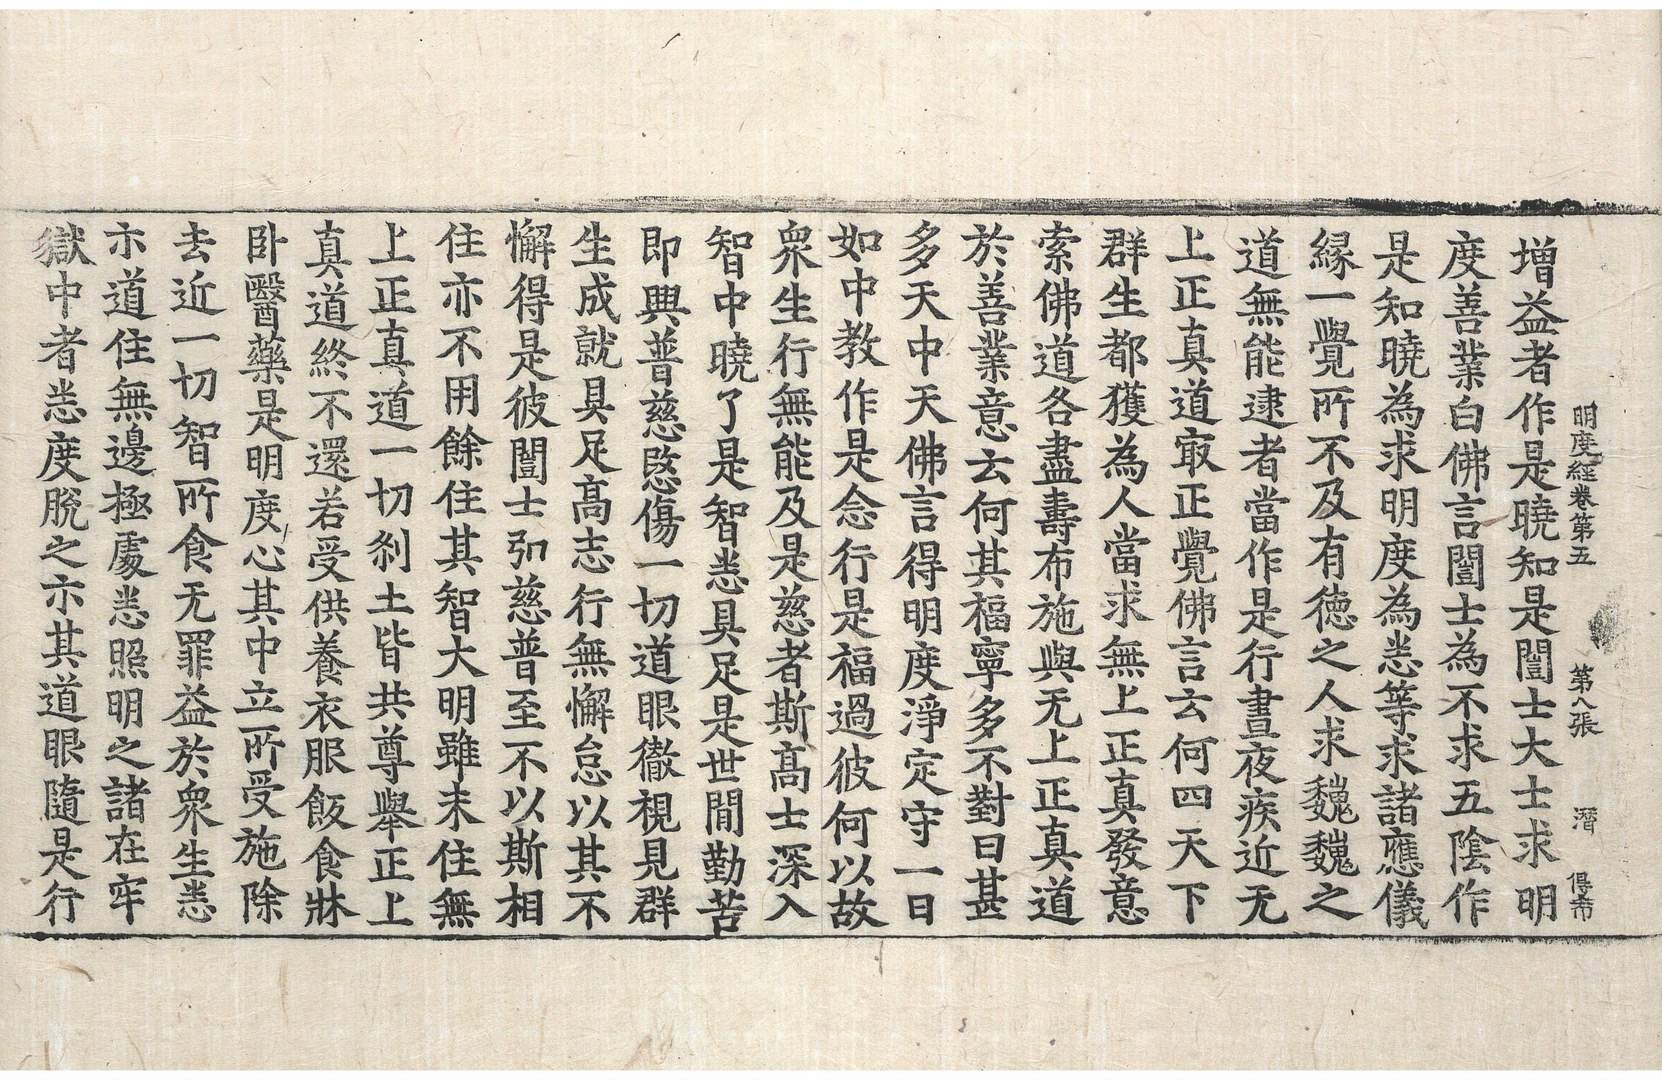 明度經卷第五 第八張 潛 得希
增益者作是曉知是闓士大士求明
度善業白佛言闓士為不求五陰作
是知曉為求明度為悉等求諸應儀
緣一覺所不及有德之人求巍巍之
道無能逮者當作是行晝夜疾近无
上正真道㝡正覺佛言云何四天下
群生都獲為人當求無上正真發意
索佛道各盡壽布施與无上正真道
於善業意云何其福寧多不對曰甚
多天中天佛言得明度淨定守一日
如中教作是念行是福過彼何以故
眾生行無能及是慈者斯高士深入
智中曉了是智悉具足是世間勤苦
即興普慈愍傷一切道眼徹視見群
生成就具足高志行無懈怠以其不
懈得是彼闓士弘慈普至不以斯相
住亦不用餘住其智大明雖未住無
上正真道一切剎土皆共尊舉正上
真道終不還若受供養衣服飯食牀
臥醫藥是明度心其中立所受施除
去近一切智所食无罪益於眾生悉
示道住無邊極處悉照明之諸在牢
獄中者悉度脫之示其道眼隨是行